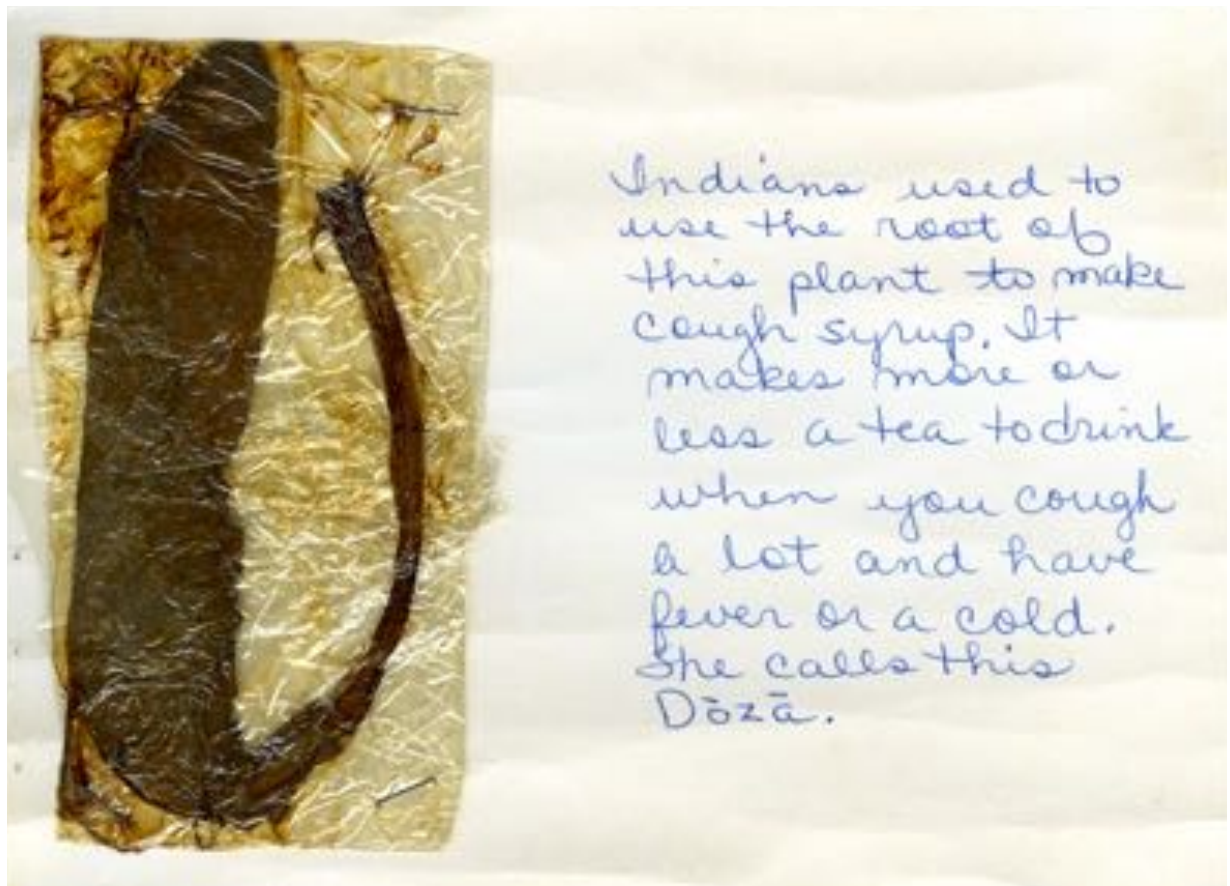 Indians used to
use the root of
this plant to make
cough syrup. It
makes more or
less a tea to drink
when you cough
a lot and have
fever or a cold.
She calls this
Dōzā.